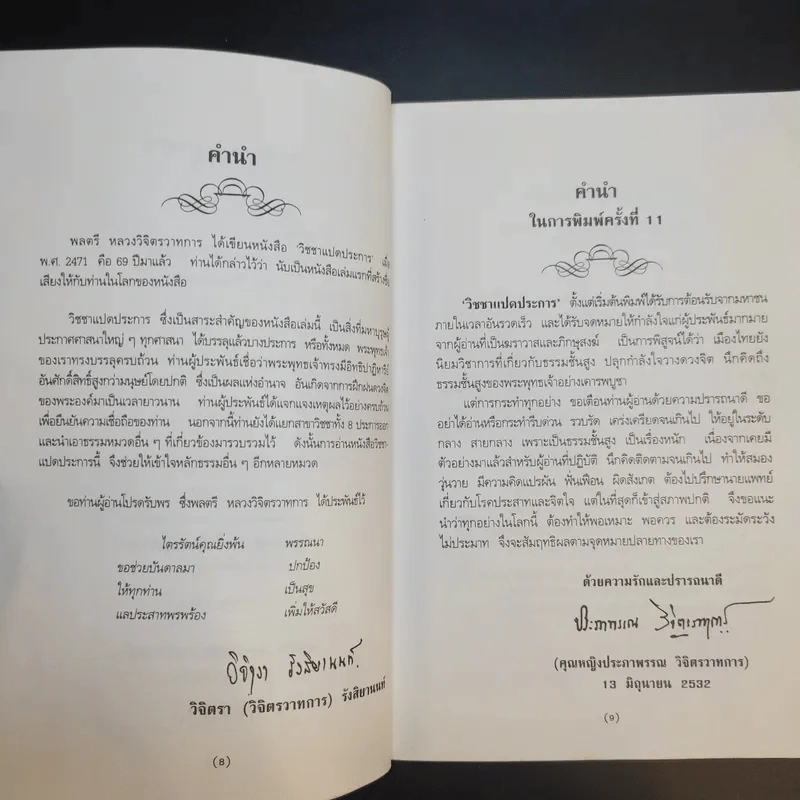 คำนำ
พลตรี หลวงวิจิตรวาทการ ได้เขียนหนังสือ 'วิชชาแปดประการ'
พ.ศ. 2471 คือ 69 ปีมาแล้ว ท่านได้กล่าวไว้ว่า นับเป็นหนังสือเล่มแรกที่สร้างชื่อ
เสียงให้กับท่านในโลกของหนังสือ
วิชชาแปดประการ ซึ่งเป็นสาระสำคัญของหนังสือเล่มนี้ เป็นสิ่งที่มหาบุรุษผู้
ประกาศศาสนาใหญ่ ๆ ทุกศาสนา ได้บรรลุแล้วบางประการ หรือทั้งหมด พระพุทธเจ้า
ของเราทรงบรรลุครบถ้วน ท่านผู้ประพันธ์เชื่อว่าพระพุทธเจ้าทรงมีอิทธิปาฏิหาริย์
อันศักดิ์สิทธิ์สูงกว่ามนุษย์โดยปกติ ซึ่งเป็นผลแห่งอำนาจ อันเกิดจากการฝึกฝนดวงจิต
ของพระองค์มาเป็นเวลายาวนาน ท่านผู้ประพันธ์ได้แจกแจงเหตุผลไว้อย่างครบถ้วน
เพื่อยืนยันความเชื่อถือของท่าน นอกจากนี้ท่านยังได้แยกสาขาวิชชาทั้ง 8 ประการออก
และนำเอาธรรมหมวดอื่น ๆ ที่เกี่ยวข้องมารวบรวมไว้ ดังนั้นการอ่านหนังสือวิชชา-
แปดประการนี้ จึงช่วยให้เข้าใจหลักธรรมอื่น ๆ อีกหลายหมวด
ขอท่านผู้อ่านโปรดรับพร ซึ่งพลตรี หลวงวิจิตรวาทการ ได้ประพันธ์ไว้
ไตรรัตน์คุณยิ่งพ้น พรรณนา
ขอช่วยบันดาลมา ปกป้อง
ให้ทุกท่าน เป็นสุข
แลประสาทพรพร้อง เพิ่มให้สวัสดี
วิจิตรา รังสิยานนท์
วิจิตรา (วิจิตรวาทการ) รังสิยานนท์
(8)
คำนำ
ในการพิมพ์ครั้งที่ 11
'วิชชาแปดประการ' ตั้งแต่เริ่มต้นพิมพ์ได้รับการต้อนรับจากมหาชน
ภายในเวลาอันรวดเร็ว และได้รับจดหมายให้กำลังใจแก่ผู้ประพันธ์มากมาย
จากผู้อ่านที่เป็นฆราวาสและภิกษุสงฆ์ เป็นการพิสูจน์ได้ว่า เมืองไทยยัง
นิยมวิชาการที่เกี่ยวกับธรรมชั้นสูง ปลุกกำลังใจวางดวงจิต นึกคิดถึง
ธรรมชั้นสูงของพระพุทธเจ้าอย่างเคารพบูชา
แต่การกระทำทุกอย่าง ขอเตือนท่านผู้อ่านด้วยความปรารถนาดี ขอ
อย่าได้อ่านหรือกระทำรีบด่วน รวบรัด เคร่งเครียดจนเกินไป ให้อยู่ในระดับ
กลาง สายกลาง เพราะเป็นธรรมชั้นสูง เป็นเรื่องหนัก เนื่องจากเคยมี
ตัวอย่างมาแล้วสำหรับผู้อ่านที่ปฏิบัติ นึกคิดติดตามจนเกินไป ทำให้สมอง
วุ่นวาย มีความคิดแปรผัน ฟั่นเฟือน ผิดสังเกต ต้องไปปรึกษานายแพทย์
เกี่ยวกับโรคประสาทและจิตใจ แต่ในที่สุดก็เข้าสู่สภาพปกติ จึงขอแนะ
นำว่าทุกอย่างในโลกนี้ ต้องทำให้พอเหมาะ พอควร และต้องระมัดระวัง
ไม่ประมาท จึงจะสัมฤทธิผลตามจุดหมายปลายทางของเรา
ด้วยความรักและปรารถนาดี
ประภาพรรณ วิจิตรวาทการ
(คุณหญิงประภาพรรณ วิจิตรวาทการ)
13 มิถุนายน 2532
(9)